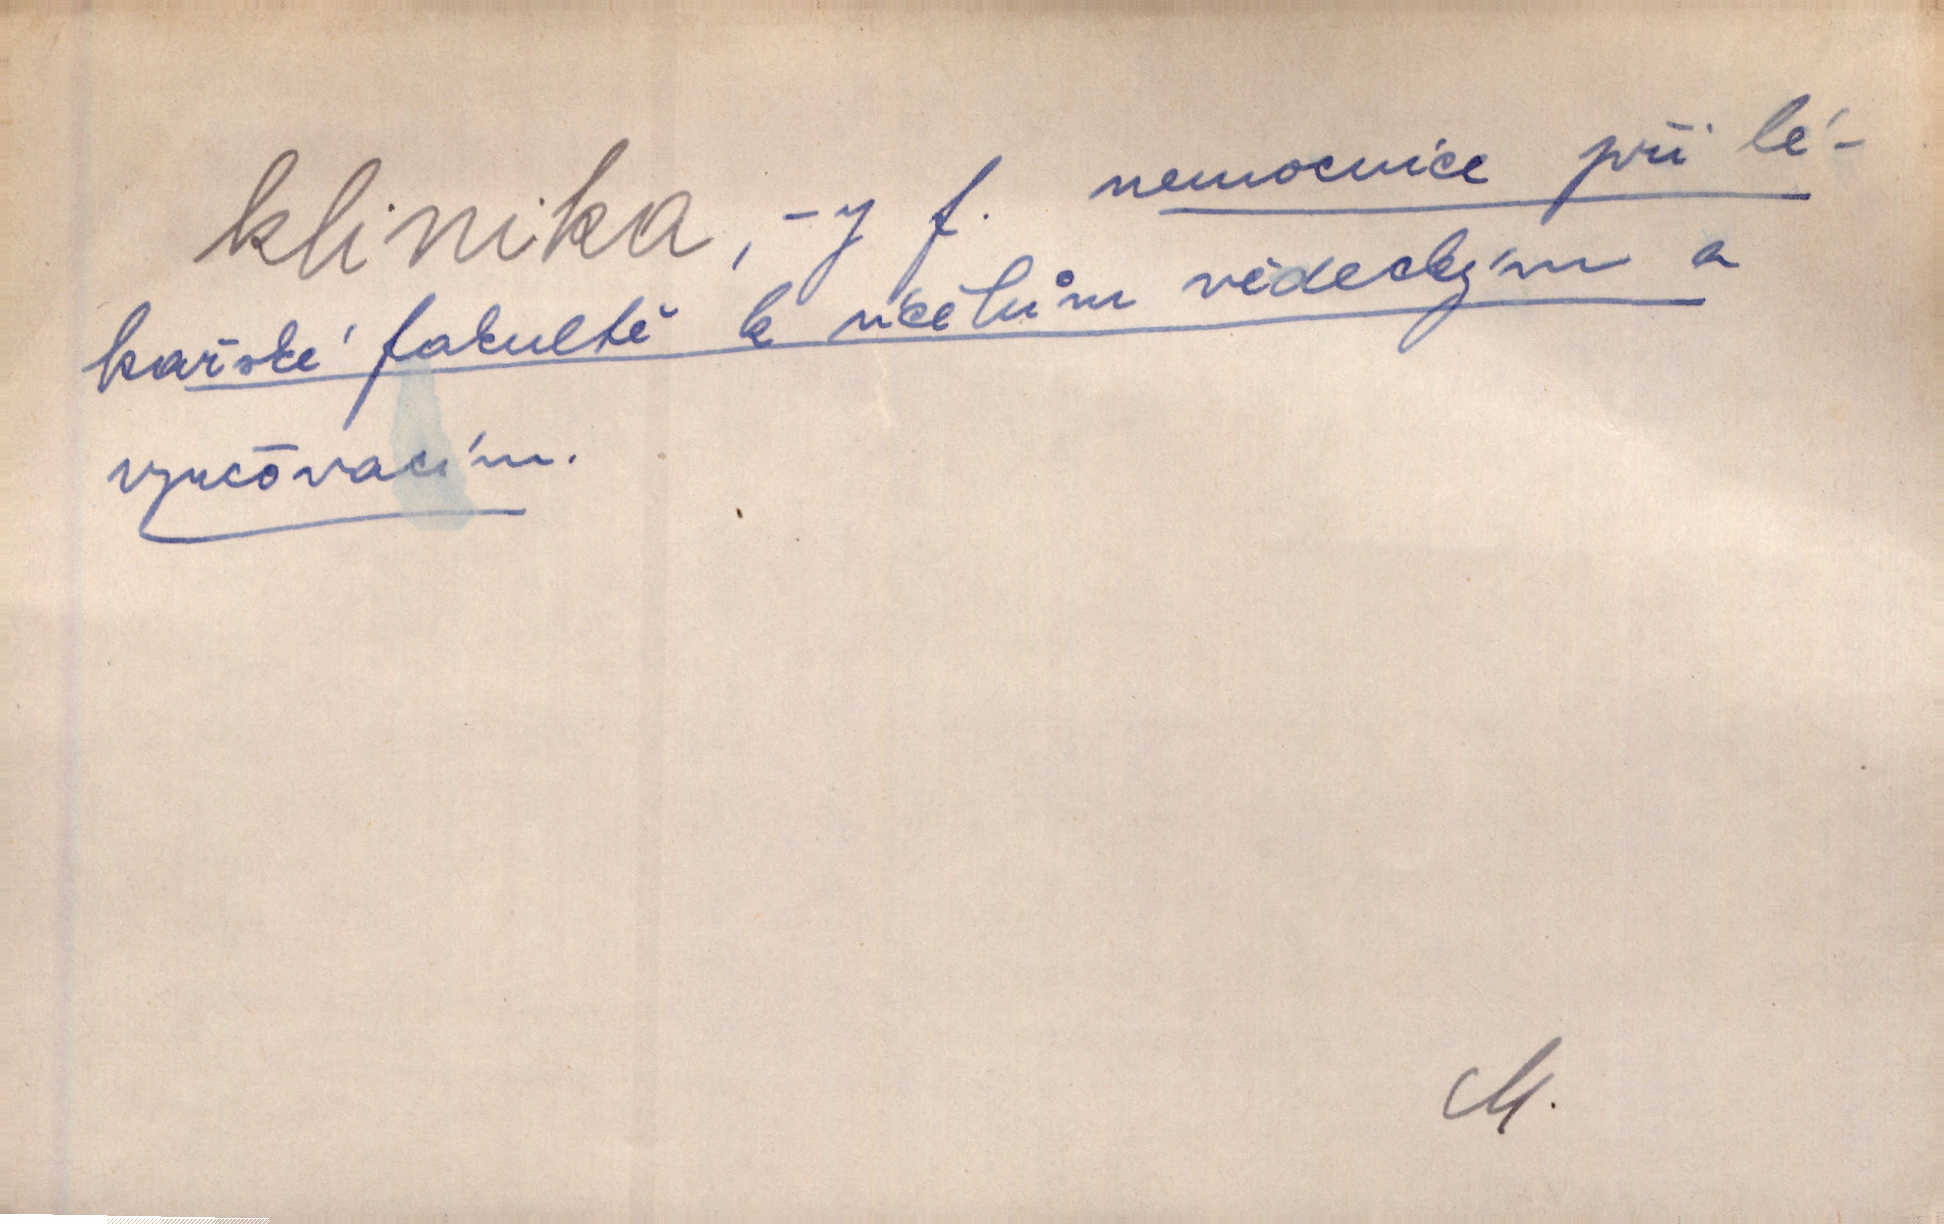 klinika, -y f. nemocnice při lé-
kařské fakultě k účelům vědeckým a
vyučovacím.
M.